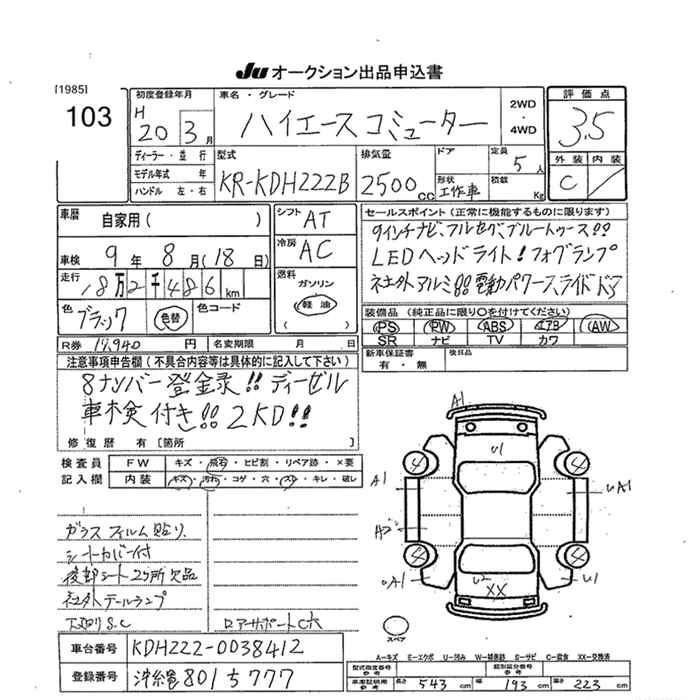 Ju オークション出品申込書
[1985]
103
初度登録年月
H 20 3月
車名・グレード
ハイエースコミューター
2WD ・ 4WD
評価点
3.5
ディーラー・並行
モデル年式 年
ハンドル 左・右
型式
KR-KDH222B
排気量
2500cc
ドア
形状
工作車
定員
5人
積載
Kg
外装 内装
C
車歴 自家用( )
シフト AT
車検 9年8月(18日)
冷房 AC
走行 18万2千486km
燃料 ガソリン
軽油
( )
色 ブラック 色替 色コード
R券 17,940円 名変期限 月 日
セールスポイント(正常に機能するものに限ります)
9インチナビ、フルセグ、ブルートゥース!!
LEDヘッドライト!フォグランプ
社外アルミ!!電動パワースライドドア
装備品(純正品に限り○を付けてください)
PS PW ABS エアB AW
SR ナビ TV カワ
新車保証書
有・無
後日品
注意事項申告欄(不具合内容等は具体的に記入して下さい)
8ナンバー登金録!!ディーゼル
車検付き!!2KD!!
修復歴 有[箇所 ]
検査員 FW キズ・飛石・ヒビ割・リペア跡・×要
記入欄 内装 キズ・汚れ・コゲ・穴・スレ・キレ・破レ
ガラスフィルム貼り、
シートカバー付
後部シート2ケ所欠品
社外テールランプ
下廻りS.C
ロアーサポートC穴
A1
U1
4
4
A1
UA1
A2
4
4
UA1
U2
XX
U1
スペア
A-キズ E-エクボ U-凹み W-補修跡 S-サビ C-腐食 XX-交換済
車台番号 KDH222-0038412
登録番号 沖縄 801 ち 777
型式指定番号 参考
類別区分番号 参考
車庫証明用 参考
長さ 543cm 幅 193cm 高さ 223cm